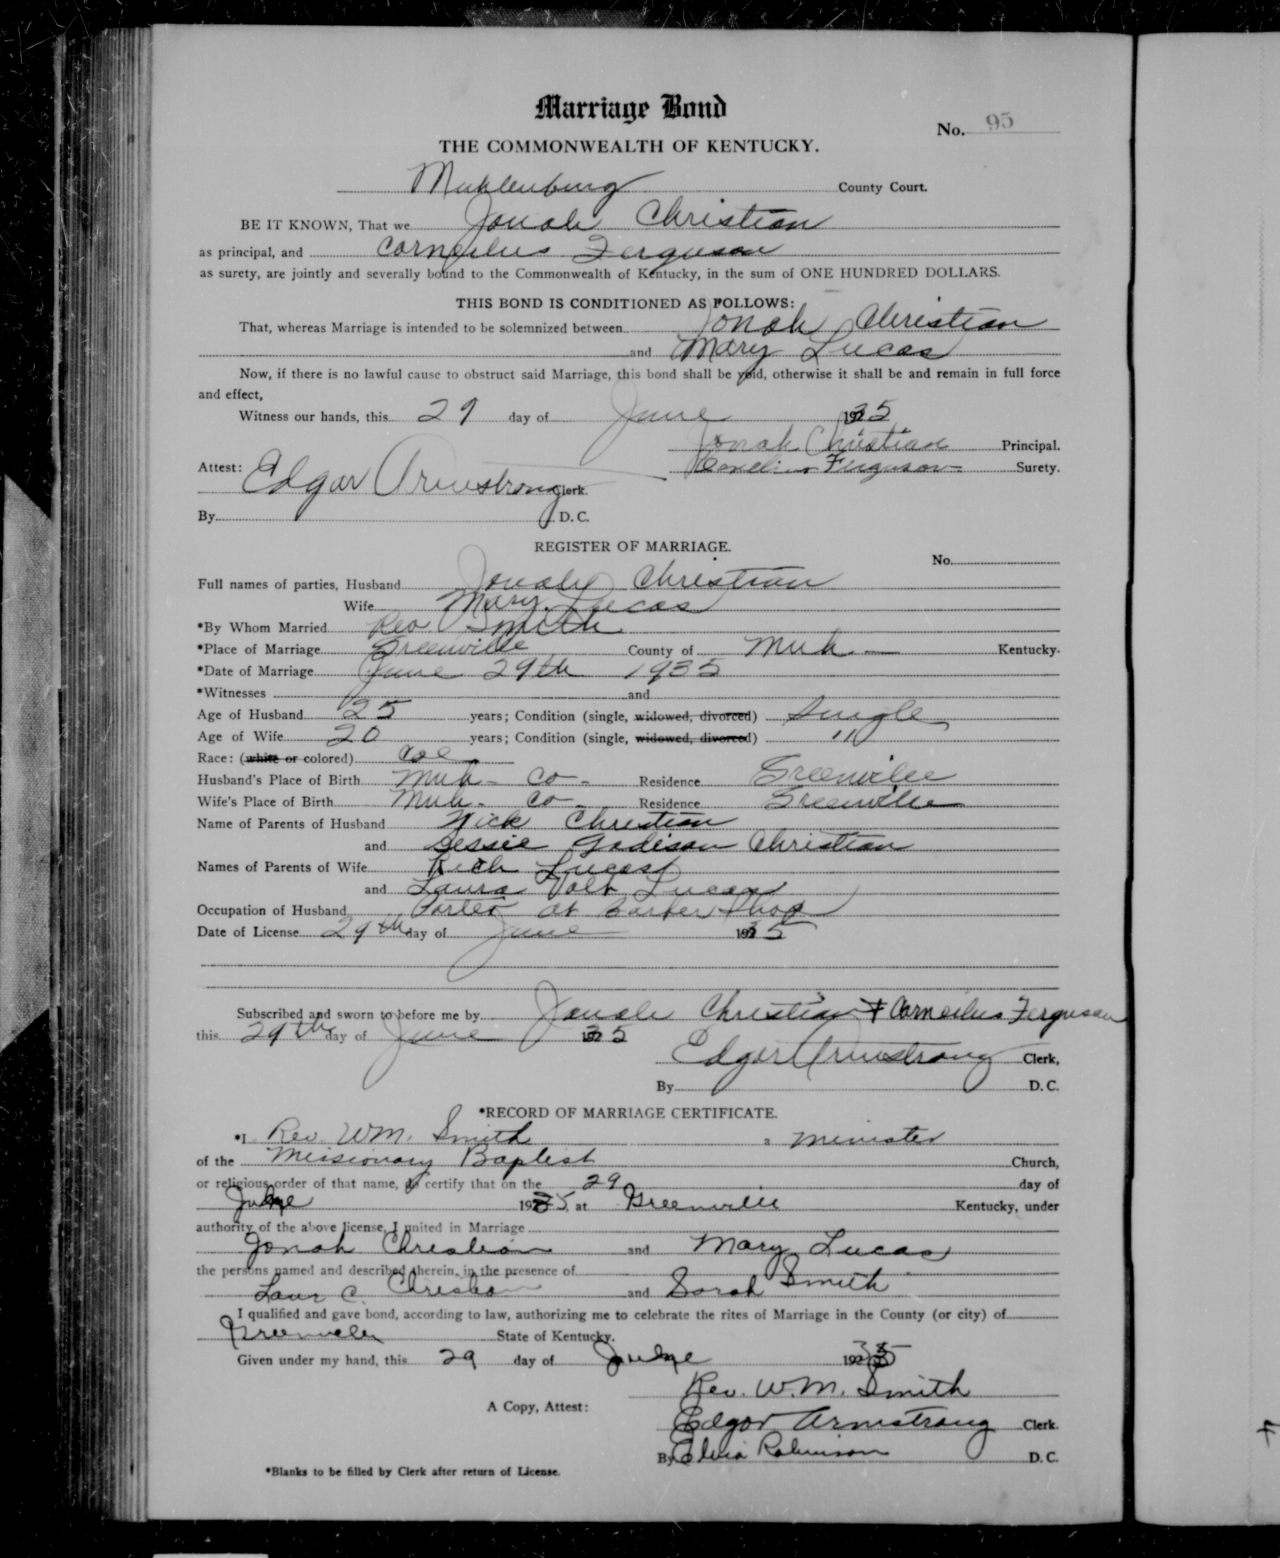 Marriage Bond
No. 95
THE COMMONWEALTH OF KENTUCKY.
Muhlenburg County Court.
BE IT KNOWN, That we Jonah Christian
as principal, and Corneilus Ferguson
as surety, are jointly and severally bound to the Commonwealth of Kentucky, in the sum of ONE HUNDRED DOLLARS.
THIS BOND IS CONDITIONED AS FOLLOWS:
That, whereas Marriage is intended to be solemnized between Jonah Christian
and Mary Lucas
Now, if there is no lawful cause to obstruct said Marriage, this bond shall be void, otherwise it shall be and remain in full force
and effect,
Witness our hands, this 29 day of June 1935
Jonah Christian Principal.
Attest: Cornelius Ferguson Surety.
Edgar Armstrong Clerk.
By D. C.
REGISTER OF MARRIAGE.
No.
Full names of parties, Husband Jonah Christian
Wife Mary Lucas
*By Whom Married Rev. Smith
*Place of Marriage Greenville County of Muh Kentucky.
*Date of Marriage June 29th 1935
*Witnesses and
Age of Husband 25 years; Condition (single, widowed, divorced) Single
Age of Wife 20 years; Condition (single, widowed, divorced) "
Race: (white or colored) Col
Husband's Place of Birth Muh - Co - Residence Greenville
Wife's Place of Birth Muh - Co - Residence Greenville
Name of Parents of Husband Nick Christian
and Bessie Christian
Names of Parents of Wife Rich Lucas
and Laura Lucas
Occupation of Husband Porter at Barber Shop
Date of License 29th day of June 1935
Subscribed and sworn to before me by Jonah Christian + Corneilus Ferguson
this 29th day of June 1935
Edgar Armstrong Clerk,
By D. C.
*RECORD OF MARRIAGE CERTIFICATE.
*I Rev. WM. Smith a minister
of the Missionary Baptist Church,
or religious order of that name, do certify that on the 29 day of
June 1935, at Greenville Kentucky, under
authority of the above license, I united in Marriage
Jonah Christian and Mary Lucas
the persons named and described therein, in the presence of
C. Christian and Sarah Smith
I qualified and gave bond, according to law, authorizing me to celebrate the rites of Marriage in the County (or city) of
Greenville State of Kentucky.
Given under my hand, this 29 day of June 1935
Rev. W.M. Smith
A Copy, Attest:
Edgar Armstrong Clerk
By Robinson D. C.
*Blanks to be filled by Clerk after return of License.